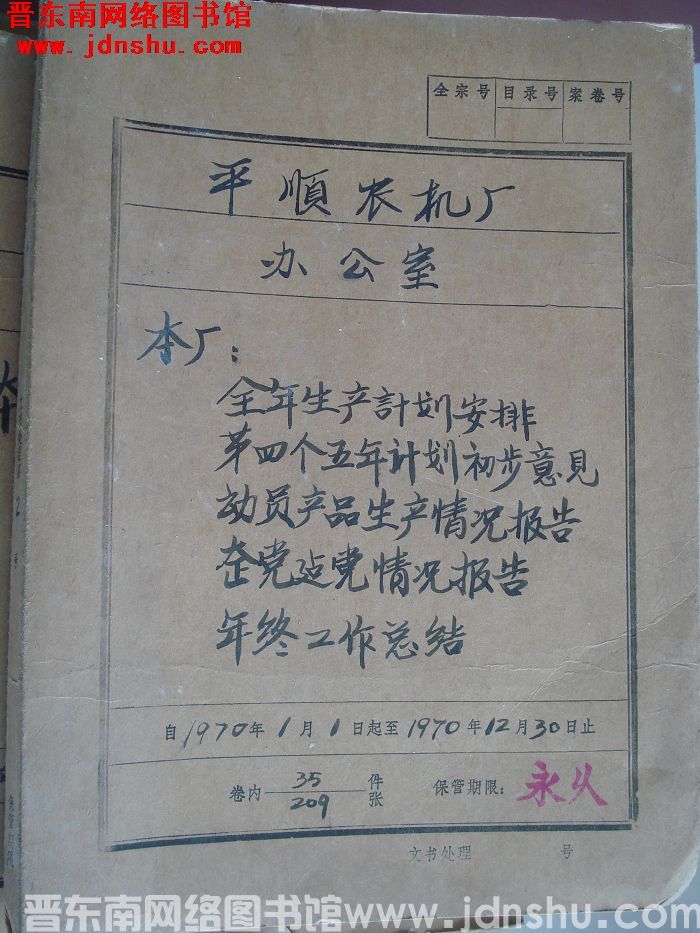 晋东南网络图书馆
www.jdnshu.com
全宗号 目录号 案卷号
平順农机厂
办公室
本厂:
全年生产計划安排
第四个五年计划初步意見
动员产品生产情况报告
整党建党情况报告
年终工作总结
自1970年1月1日起至1970年12月30日止
卷内 35 件
209 张
保管期限: 永久
文书处理 号
晋东南网络图书馆 www.jdnshu.com